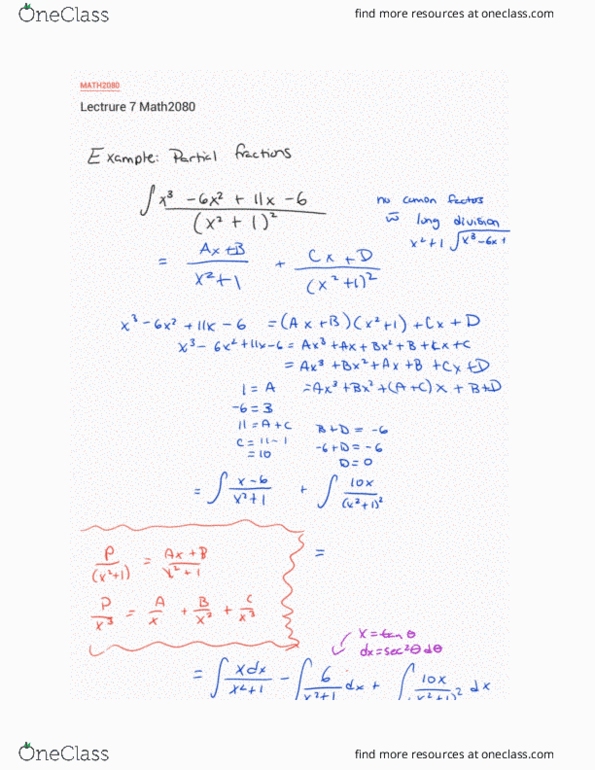 OneClass find more resources at oneclass.com
MATH2080
Lectrure 7 Math2080
Example: Partial fractions
∫ x³ - 6x² + 11x - 6 / (x² + 1)²
no common factors
w̄ long division
x²+1 √x³-6x+
= Ax+B / x²+1 + Cx+D / (x²+1)²
x³-6x²+11x-6 = (Ax+B)(x²+1)+Cx+D
x³-6x²+11x-6 = Ax³+Ax+Bx²+B+Cx+C
= Ax³+Bx²+Ax+B+Cx+D
1 = A =Ax³+Bx²+(A+C)x+B+D
-6=3
11=A+C B+D=-6
C=11-1 -6+D=-6
=10 D=0
= ∫ x-6 / x²+1 + ∫ 10x / (x²+1)²
P / (x²+1) = Ax+B / x²+1
=
P / x³ = A / x + B / x² + C / x³
x=tan θ
dx=sec²θdθ
= ∫ xdx / x²+1 - ∫ 6 / x²+1 dx + ∫ 10x / (x²+1)² dx
OneClass find more resources at oneclass.com